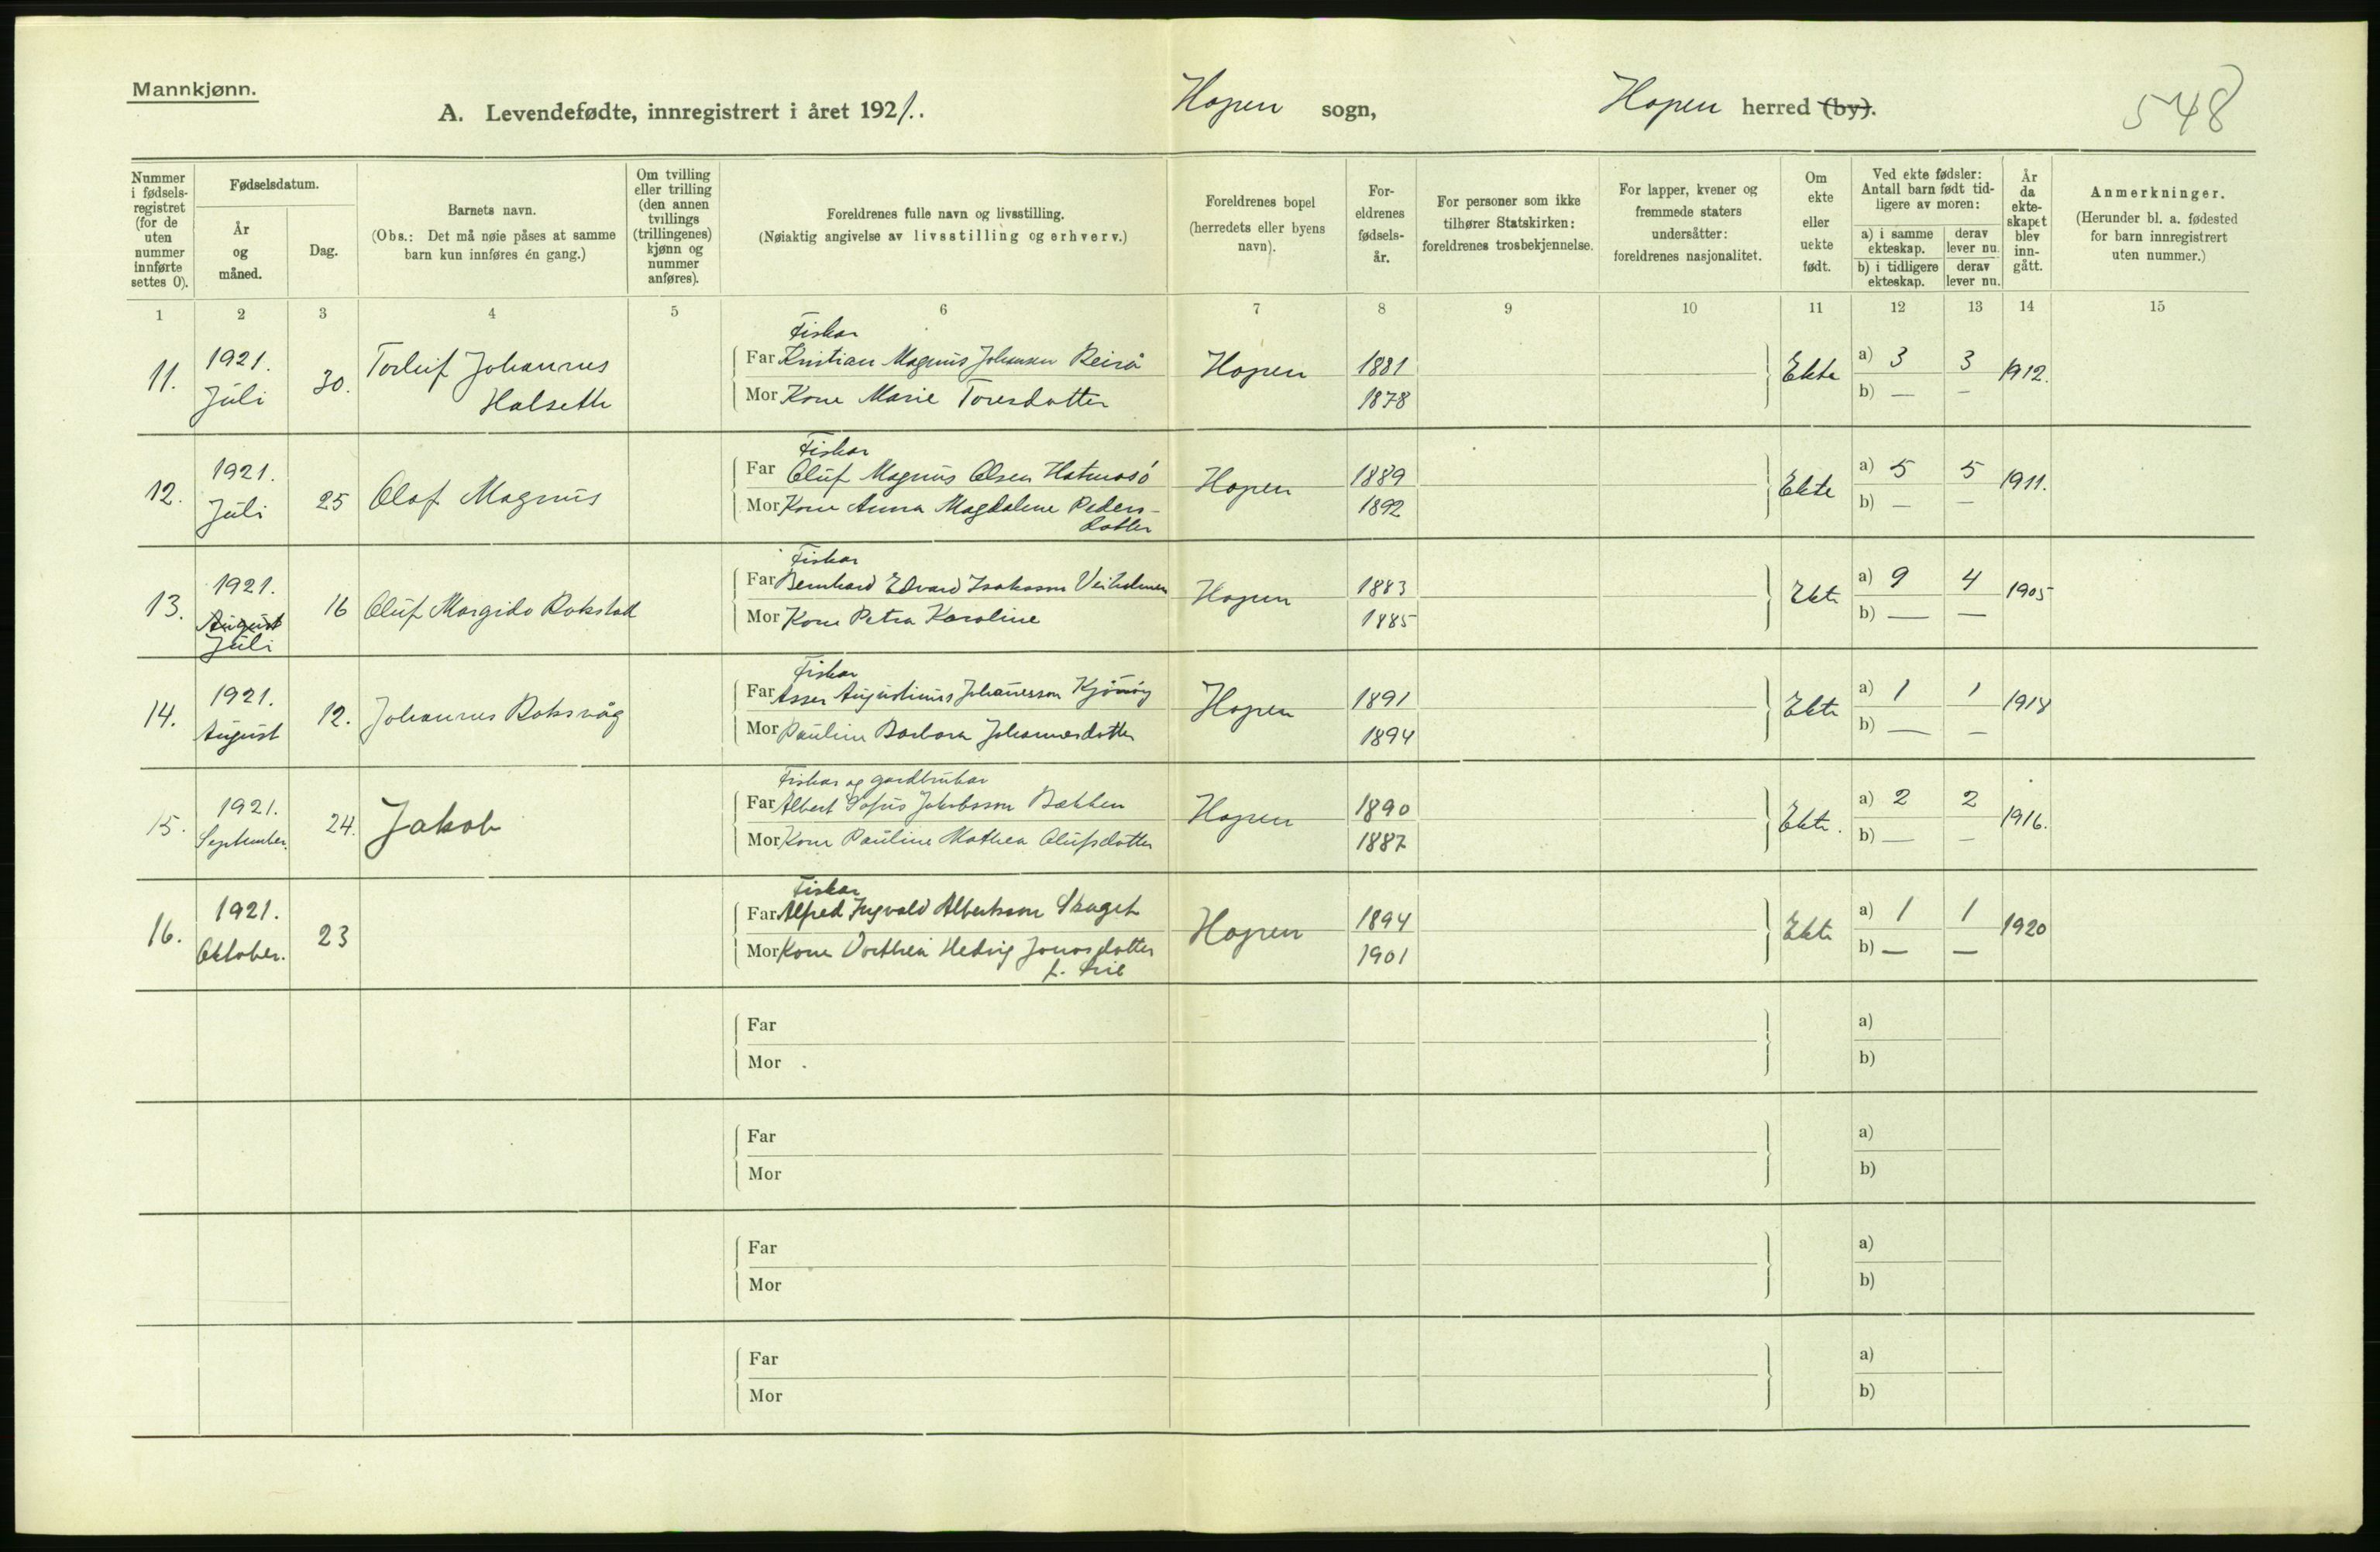 Mannkjønn.
A. Levendefødte, innregistrert i året 1921.. Hopen sogn, Hopen herred (by). 548
Nummer i fødselsregistret (for de uten nummer innførte settes 0).
Fødselsdatum.
År og måned.
Dag.
Barnets navn.
(Obs.: Det må nøie påses at samme barn kun innføres én gang.)
Om tvilling eller trilling (den annen tvillings (trillingenes) kjønn og nummer anføres).
Foreldrenes fulle navn og livsstilling.
(Nøiaktig angivelse av livsstilling og erhverv.)
Foreldrenes bopel (herredets eller byens navn).
Foreldrenes fødselsår.
For personer som ikke tilhører Statskirken: foreldrenes trosbekjennelse.
For lapper, kvener og fremmede staters undersåtter: foreldrenes nasjonalitet.
Om ekte eller uekte født.
Ved ekte fødsler: Antall barn født tidligere av moren:
a) i samme ekteskap. derav lever nu.
b) i tidligere ekteskap. derav lever nu.
År da ekteskapet blev inngått.
Anmerkninger.
(Herunder bl. a. fødested for barn innregistrert uten nummer.)
1 2 3 4 5 6 7 8 9 10 11 12 13 14 15
Fiskar
11. 1921. Juli 30. Torleif Johannes Halseth Far Kristian Magnus Johansen Reirå Hopen 1881 Ekte a) 3 3 1912.
Mor Kone Marie Toresdotter 1878 b) — —
Fiskar
12. 1921. Juli 25 Olaf Magnus Far Oluf Magnus Olsen Hatmosö Hopen 1889 Ekte a) 5 5 1911.
Mor Kone Anna Magdalene Peders-
dotter 1892 b) — —
Fiskar
13. 1921. August Juli 16 Oluf Margido Rokstad Far Bernhard Edvard Isaksson Veiholmen Hopen 1883 Ekte a) 9 4 1905
Mor Kone Petra Karoline 1885 b) — —
Fiskar
14. 1921. August 12. Johannes Roksvåg Far Asser Augustinus Johanesson Hopen 1891 Ekte a) 1 1 1918
Mor Pauline Barbara Johannesdotter 1894 b) — —
Fiskar og gardbrukar
15. 1921. September. 24. Jakob Far Albert Sofus Jakobsson Bækken Hopen 1890 Ekte. a) 2 2 1916.
Mor Kone Pauline Mathea Olufsdotter 1887 b) — —
Fiskar
16. 1921. Oktober. 23 Far Alfred Ingvald Albertsson Skaget Hopen 1894 Ekte a) 1 1 1920
Mor Kone Dorthea Hedvig Jonasdotter 1901 b) — —
Far a)
Mor b)
Far a)
Mor b)
Far a)
Mor b)
Far a)
Mor b)